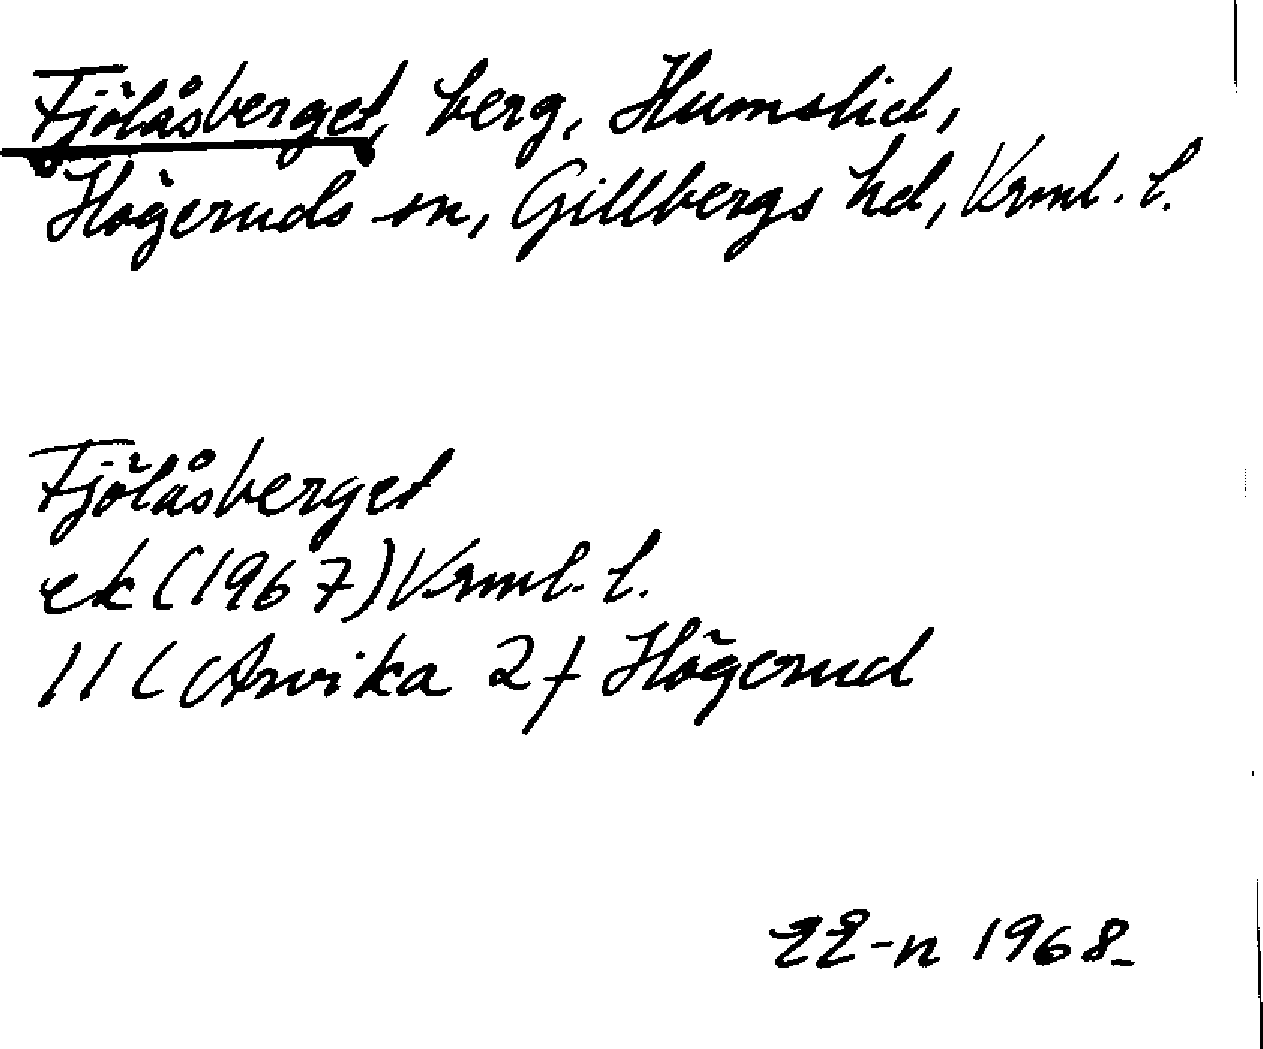 Fjölåsberget, berg, Humslid,
Högeruds sn, Gillbergs hd, Vrml. l.
Fjölåsberget
ek (1967) Vrml. l.
11 C Arvika 2f Högerud
EE-n 1968